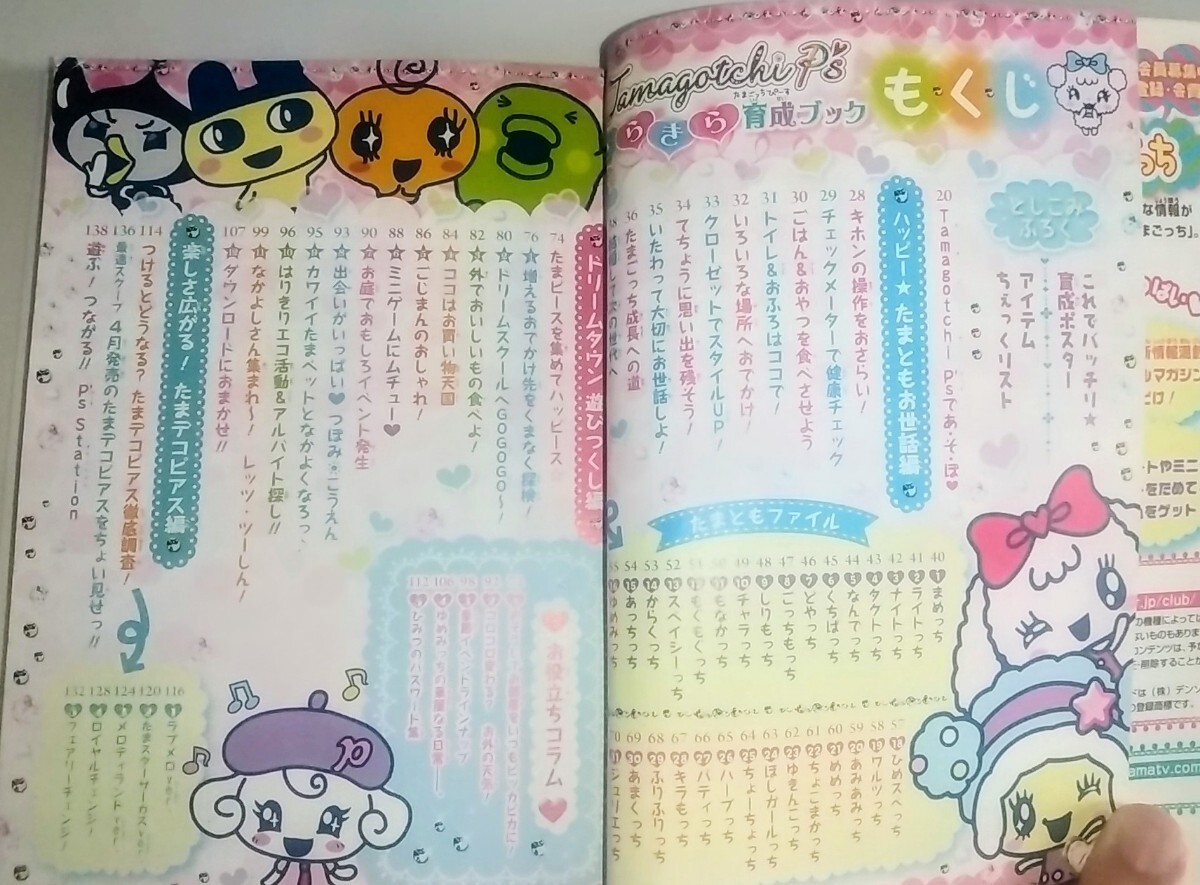 Tamagotchi P's
たまごっちぴーす
らきら育成ブック
もくじ
とじこみふろく
これでバッチリ★
育成ポスター
アイテム
ちぇっくリスト
20 Tamagotchi P'sであ・そ・ぼ♥
ハッピー★たまともお世話編
28 キホンの操作をおさらい!
29 チェックメーターで健康チェック
30 ごはん&おやつを食べさせよう
31 トイレ&おふろはココで!
32 いろいろな場所へおでかけ!
33 クローゼットでスタイルUP!
34 てちょうに思い出を残そう!
35 いたわって大切にお世話しよ!
36 たまごっち成長への道
たまともファイル
40 1 まめっち
41 2 ライトっち
42 3 ナイトっち
43 4 タクトっち
44 5 なんでっち
45 6 くちぱっち
46 7 どやっち
47 8 ごっちもっち
48 9 しりもっち
49 10 チャラっち
50 11 もなかっち
51 12 もくもくっち
52 13 スペイシーっち
53 14 からくっち
54 15 あっちっち
55 16 ゆめみっち
57 18 ひめスペっち
58 19 ワルツっち
59 20 あみあみっち
60 21 めめっち
61 22 ちょこまかっち
62 23 ゆきんこっち
63 24 ほしガールっち
64 25 ちょーちょっち
65 26 ハープっち
66 27 パティっち
67 28 キラもっち
68 29 ふりふりっち
69 30 あまくっち
70 31 ジューエっち
ドリームタウン 遊びつくし編
74 たまピースを集めてハッピース
76 ★増えるおでかけ先をくまなく探検!
80 ★ドリームスクールへGOGOGO~!
82 ★外でおいしいもの食べよ!
84 ★ココはお買い物天国
86 ★ごじまんのおしゃれ!
88 ★ミニゲームにムチュー♥
90 ★お庭でおもしろイベント発生
93 ★出会いがいっぱい♥つぼみ こうえん
95 ★カワイイたまペットとなかよくなろっ
96 ★はりきりエコ活動&アルバイト探し!!
99 ★なかよしさん集まれ! レッツ・ツーしん!
107 ★ダウンロードにおまかせ!!
楽しさ広がる! たまデコピアス編
114 つけるとどうなる? たまデコピアス徹底調査!
136 最速スクープ 4月発売のたまデコピアスをちょい見せっ!!
138 遊ぶ! つながる!! P's Station
お役立ちコラム
98 季節イベントラインナップ
106 ゆめみっちの華麗なる日常
112 ひみつのパスワード集
116 1 ラブメロ
120 2 たまスターサーカス
124 3 メロディランド
128 4 ロイヤルチェンジ!
132 5 フェアリーチェンジ!
会員募集
っち
な情報が
まごっち」
マガジン
だけ!
トやミニ
をためて
をゲット
.jp/club/
の機種によっては
いものもありま
コンテンツは、予
・削除することか
ドは(株)デンソ
の登録商標です。
amatv.com/